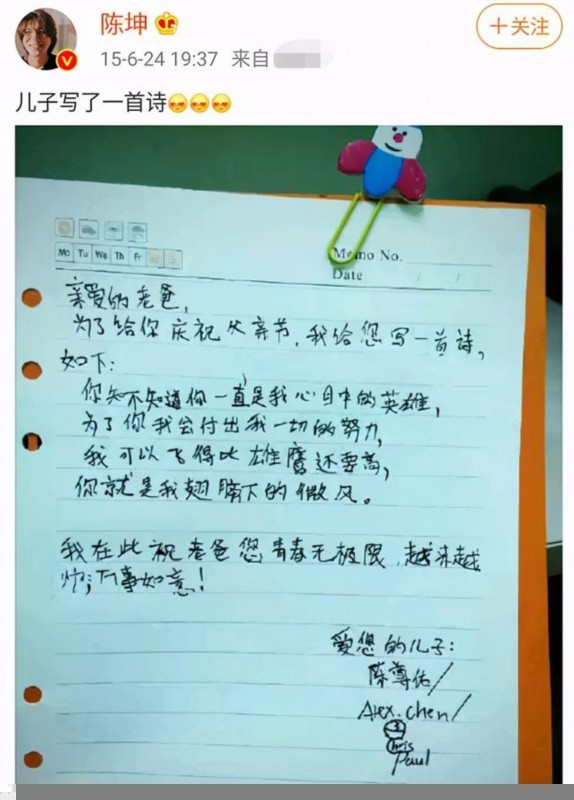 陈坤
+关注
15-6-24 19:37 来自
儿子写了一首诗
Mo Tu We Th Fr
Memo No.
Date
亲爱的老爸,
为了给你庆祝父亲节,我给您写一首诗,
如下:
你知不知道你一直是我心目中的英雄,
为了你我会付出我一切的努力,
我可以飞得比雄鹰还要高,
你就是我翅膀下的微风。
我在此祝老爸您青春无极限,越来越
万事如意!
爱您的儿子:
陈尊佑/
Alex.chen/
Chris
Paul